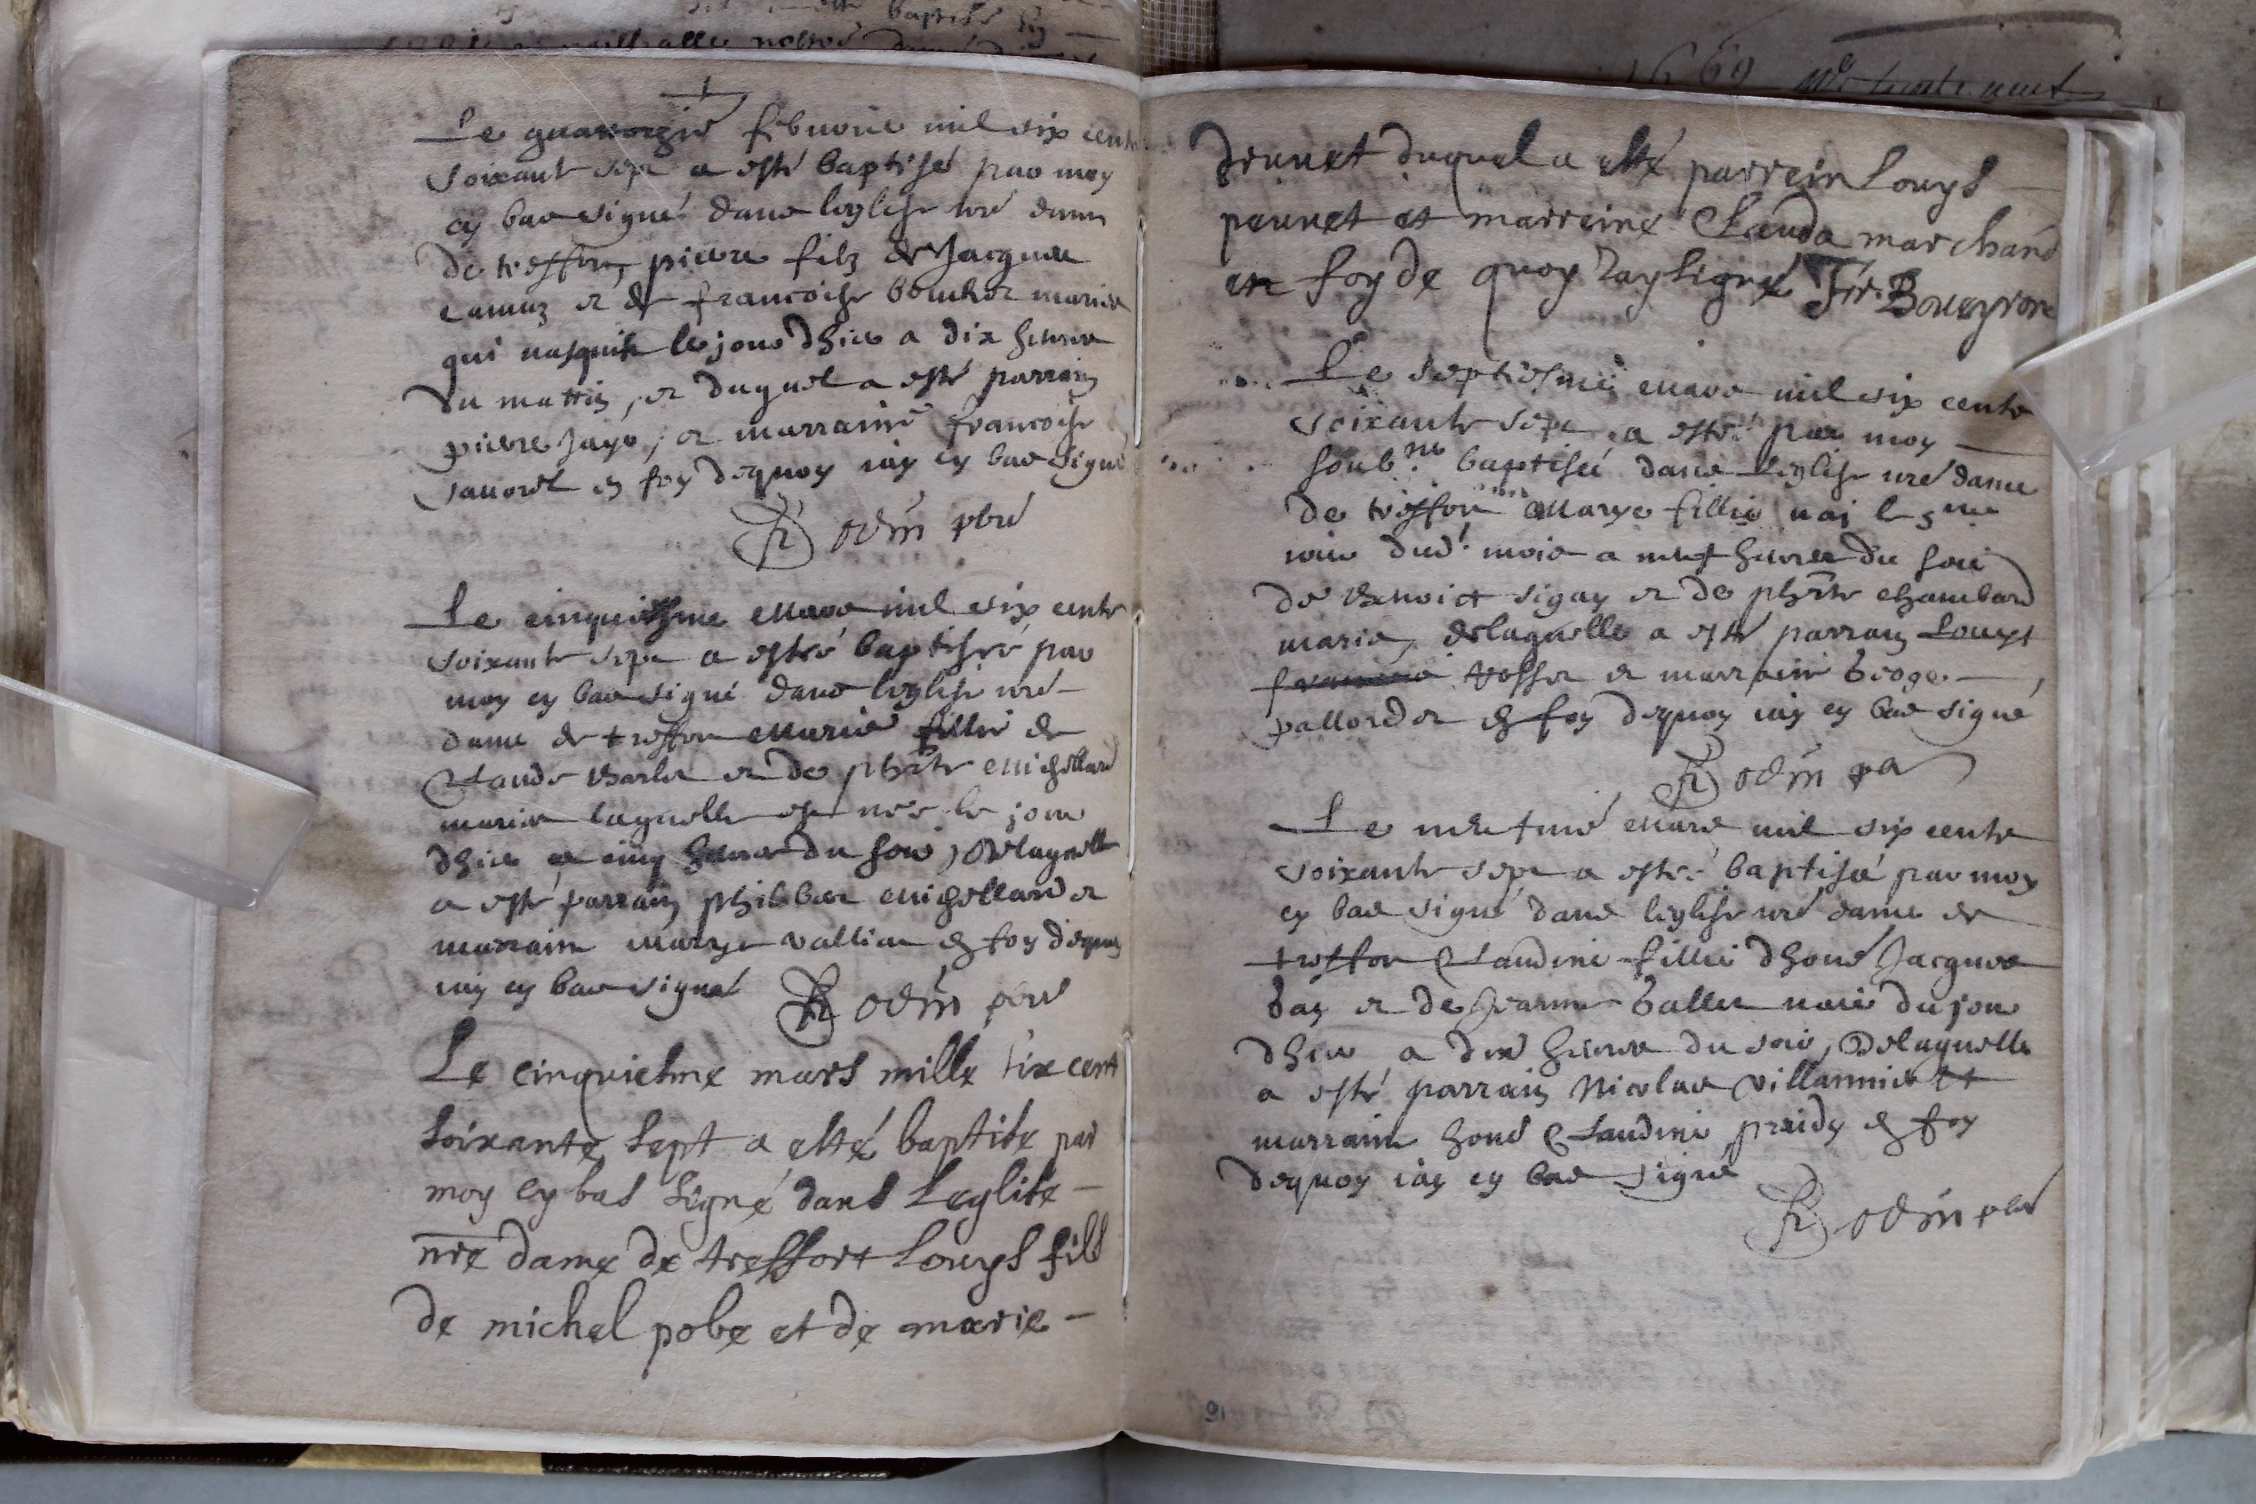 Le quatorziè febvrier mil six cents
soixante sept a esté baptisé par moy
cy bas signé dans leglise nré dame
de treffort, pierre filz de Jacques
camuz et de francoise bouchet mariés
qui nasquit le jour dhier a dix heures
du mattin, et duquel a esté parrain
pierre Jayr, et marraine francoise
en foy dequoy iay cy bas signé
odin pbré
Le cinquiesme mars mil six cents
soixante sept a estée baptisée par
moy cy bas signé dans leglise nré
dame de treffort Marie fillie de
Claude et de phte Michellard
mariés laquelle est née le jour
dhier a cinq heures du soir, delaquelle
a esté parrain philibert Michellard et
marraine Marye vallian en foy dequoy
iay cy bas signé odin pbré
Le cinquiesme mars mille six cent
soixante sept a esté baptise par
moy cy bas signé dans Leglise
nre dame de treffort Louys fils
de michel pobe et de marie
druuet duquel a esté parrein Louys
peunet et marreine Clauda marchand
en foy de quoy Jay signé Fr. Boueyron
Le septiesme mars mil six cents
soixante sept a esté par moy
soubné baptisée dans Leglise nré dame
de treffort Marye fillie nai le 5me
jour dud. mois a neuf heures du soir
de benoict sigay et de phte chambard
mariés, delaquelle a esté parrain Louys
et marraine
pallordet en foy dequoy iay cy bas signé
odin pbr
Le neufmé mars mil six cents
soixante sept a estée baptisée par moy
cy bas signé dans leglise nré dame de
treffort Claudine fillie dhoné Jacques
bay et de Jeanne ballet naie du jour
dhier a dix heures du soir, Delaquelle
a esté parrain Nicolas villannier et
marraine honé Claudine en foy
dequoy iay cy bas signé
odin pbr